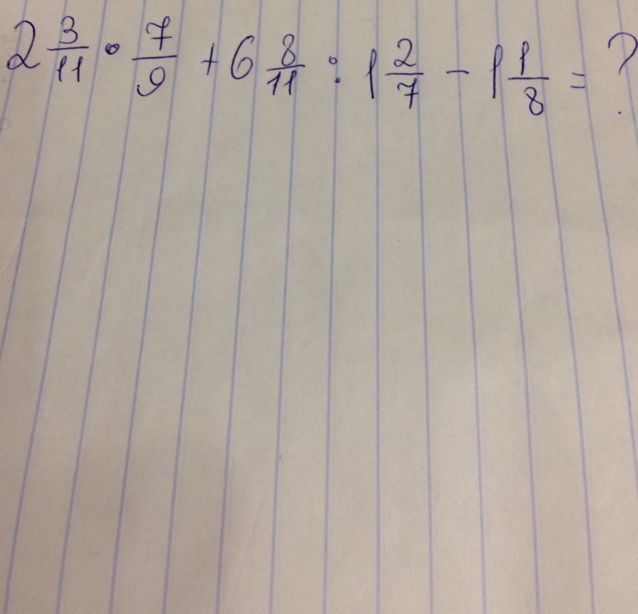 2 3/11 • 7/9 + 6 8/11 : 1 2/7 - 1 1/8 = ?